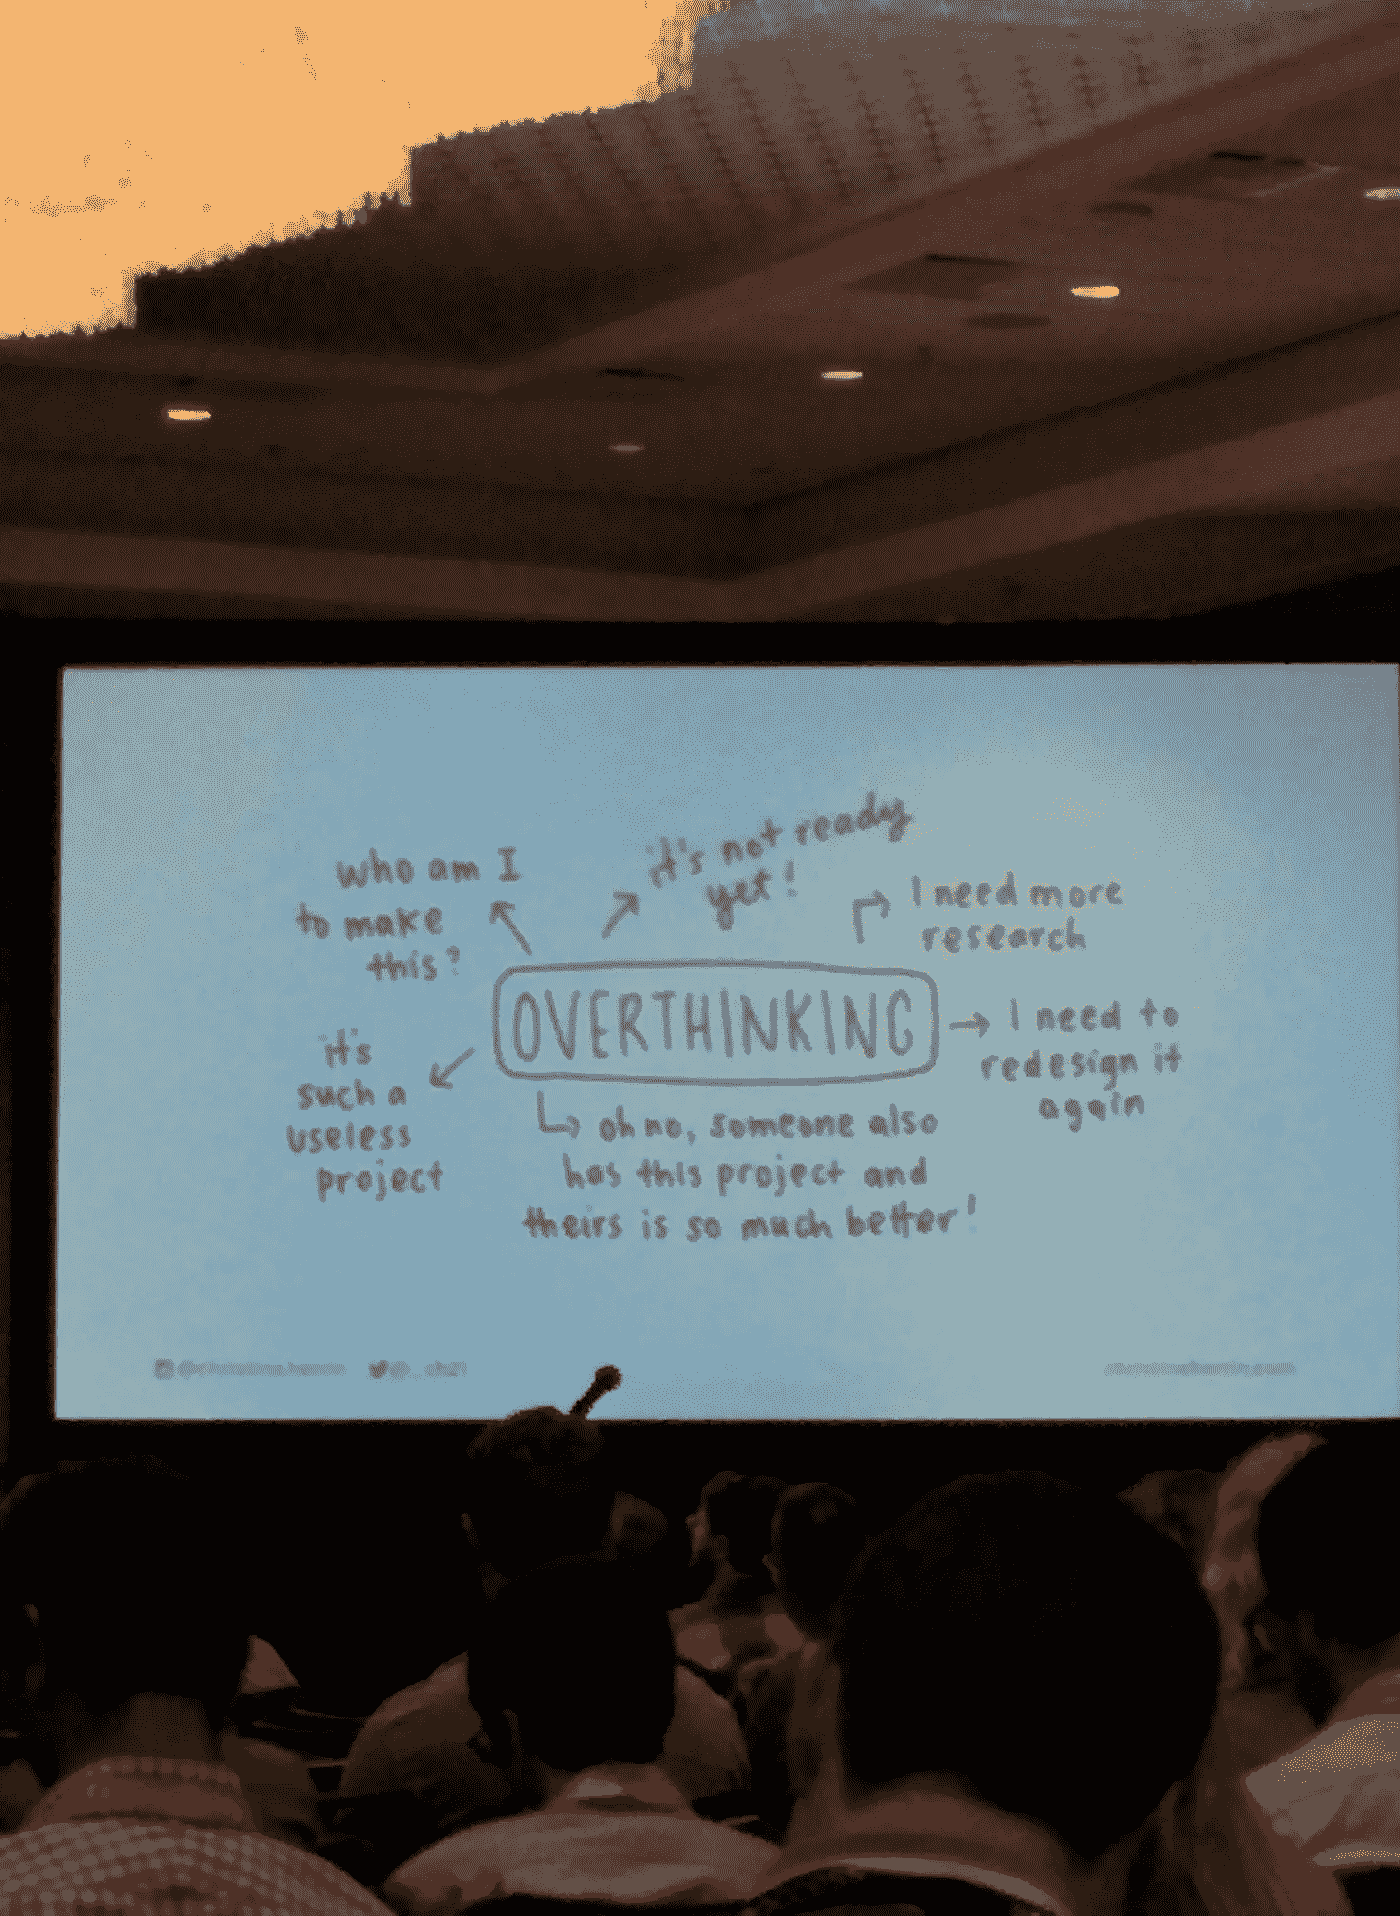 who am I
to make
this?
it's not ready
yet!
I need more
research
OVERTHINKING
I need to
redesign it
again
it's
such a
useless
project
oh no, someone also
has this project and
theirs is so much better!